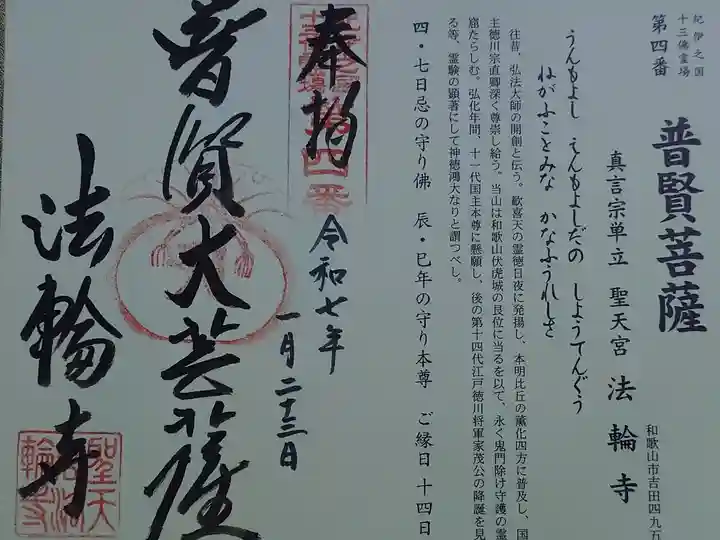 紀伊之国
十三佛霊場
第四番
普賢菩薩
真言宗単立 聖天宮 法輪寺
和歌山市吉田四九五
うんもよし えんもよしだの しょうてんぐう
ねがふことみな かなふうれしさ
往昔、弘法大師の開創と伝う。歓喜天の霊徳日夜に発揚し、本明比丘の薫化四方に普及し、国
主徳川宗直卿深く尊崇し給う。当山は和歌山伏虎城の艮位に当るを以て、永く鬼門除け守護の霊
窟たらしむ。弘化年間、十一代国主本尊に懸願し、後の第十四代江戸徳川将軍家茂公の降誕を見
る等、霊験の顕著にして神徳鴻大なりと謂つべし。
四・七日忌の守り佛 辰・巳年の守り本尊 ご縁日 十四日
奉拝
令和七年
一月二十三日
普賢大菩薩
法輪寺
聖天